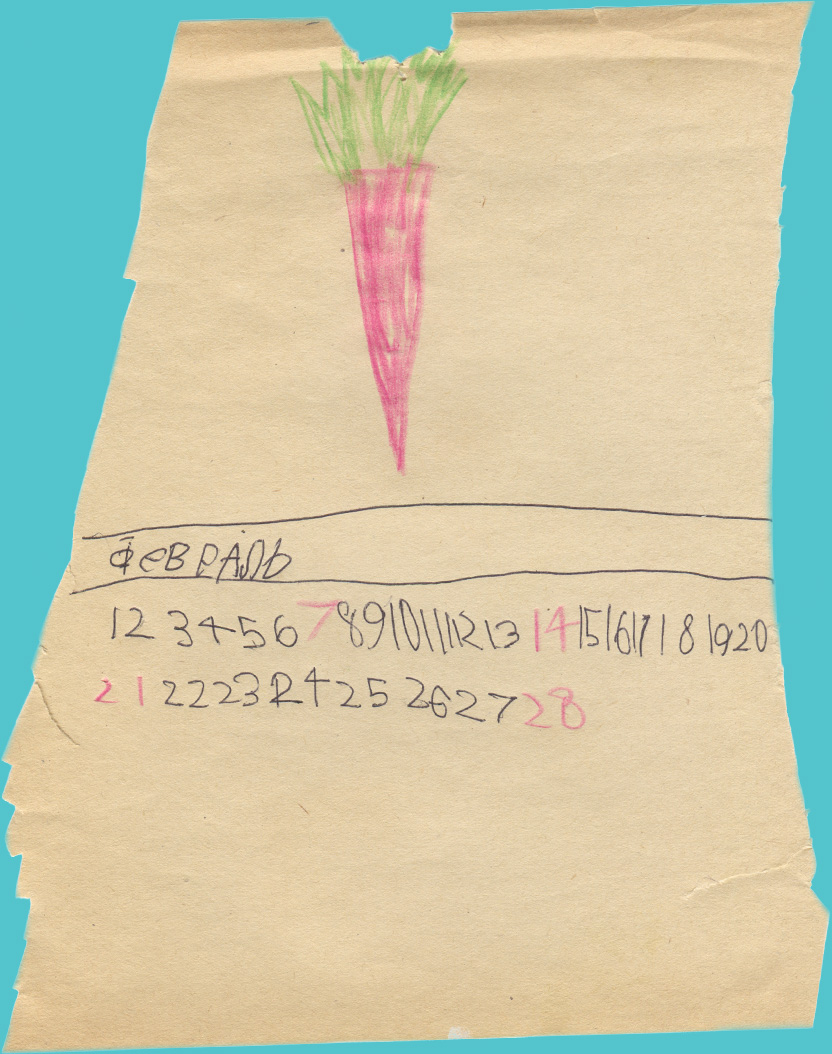 ФеВРАЛЬ
1 2 3 4 5 6 7 8 9 10 11 12 13 14 15 16 17 18 19 20
21 22 23 24 25 26 27 28